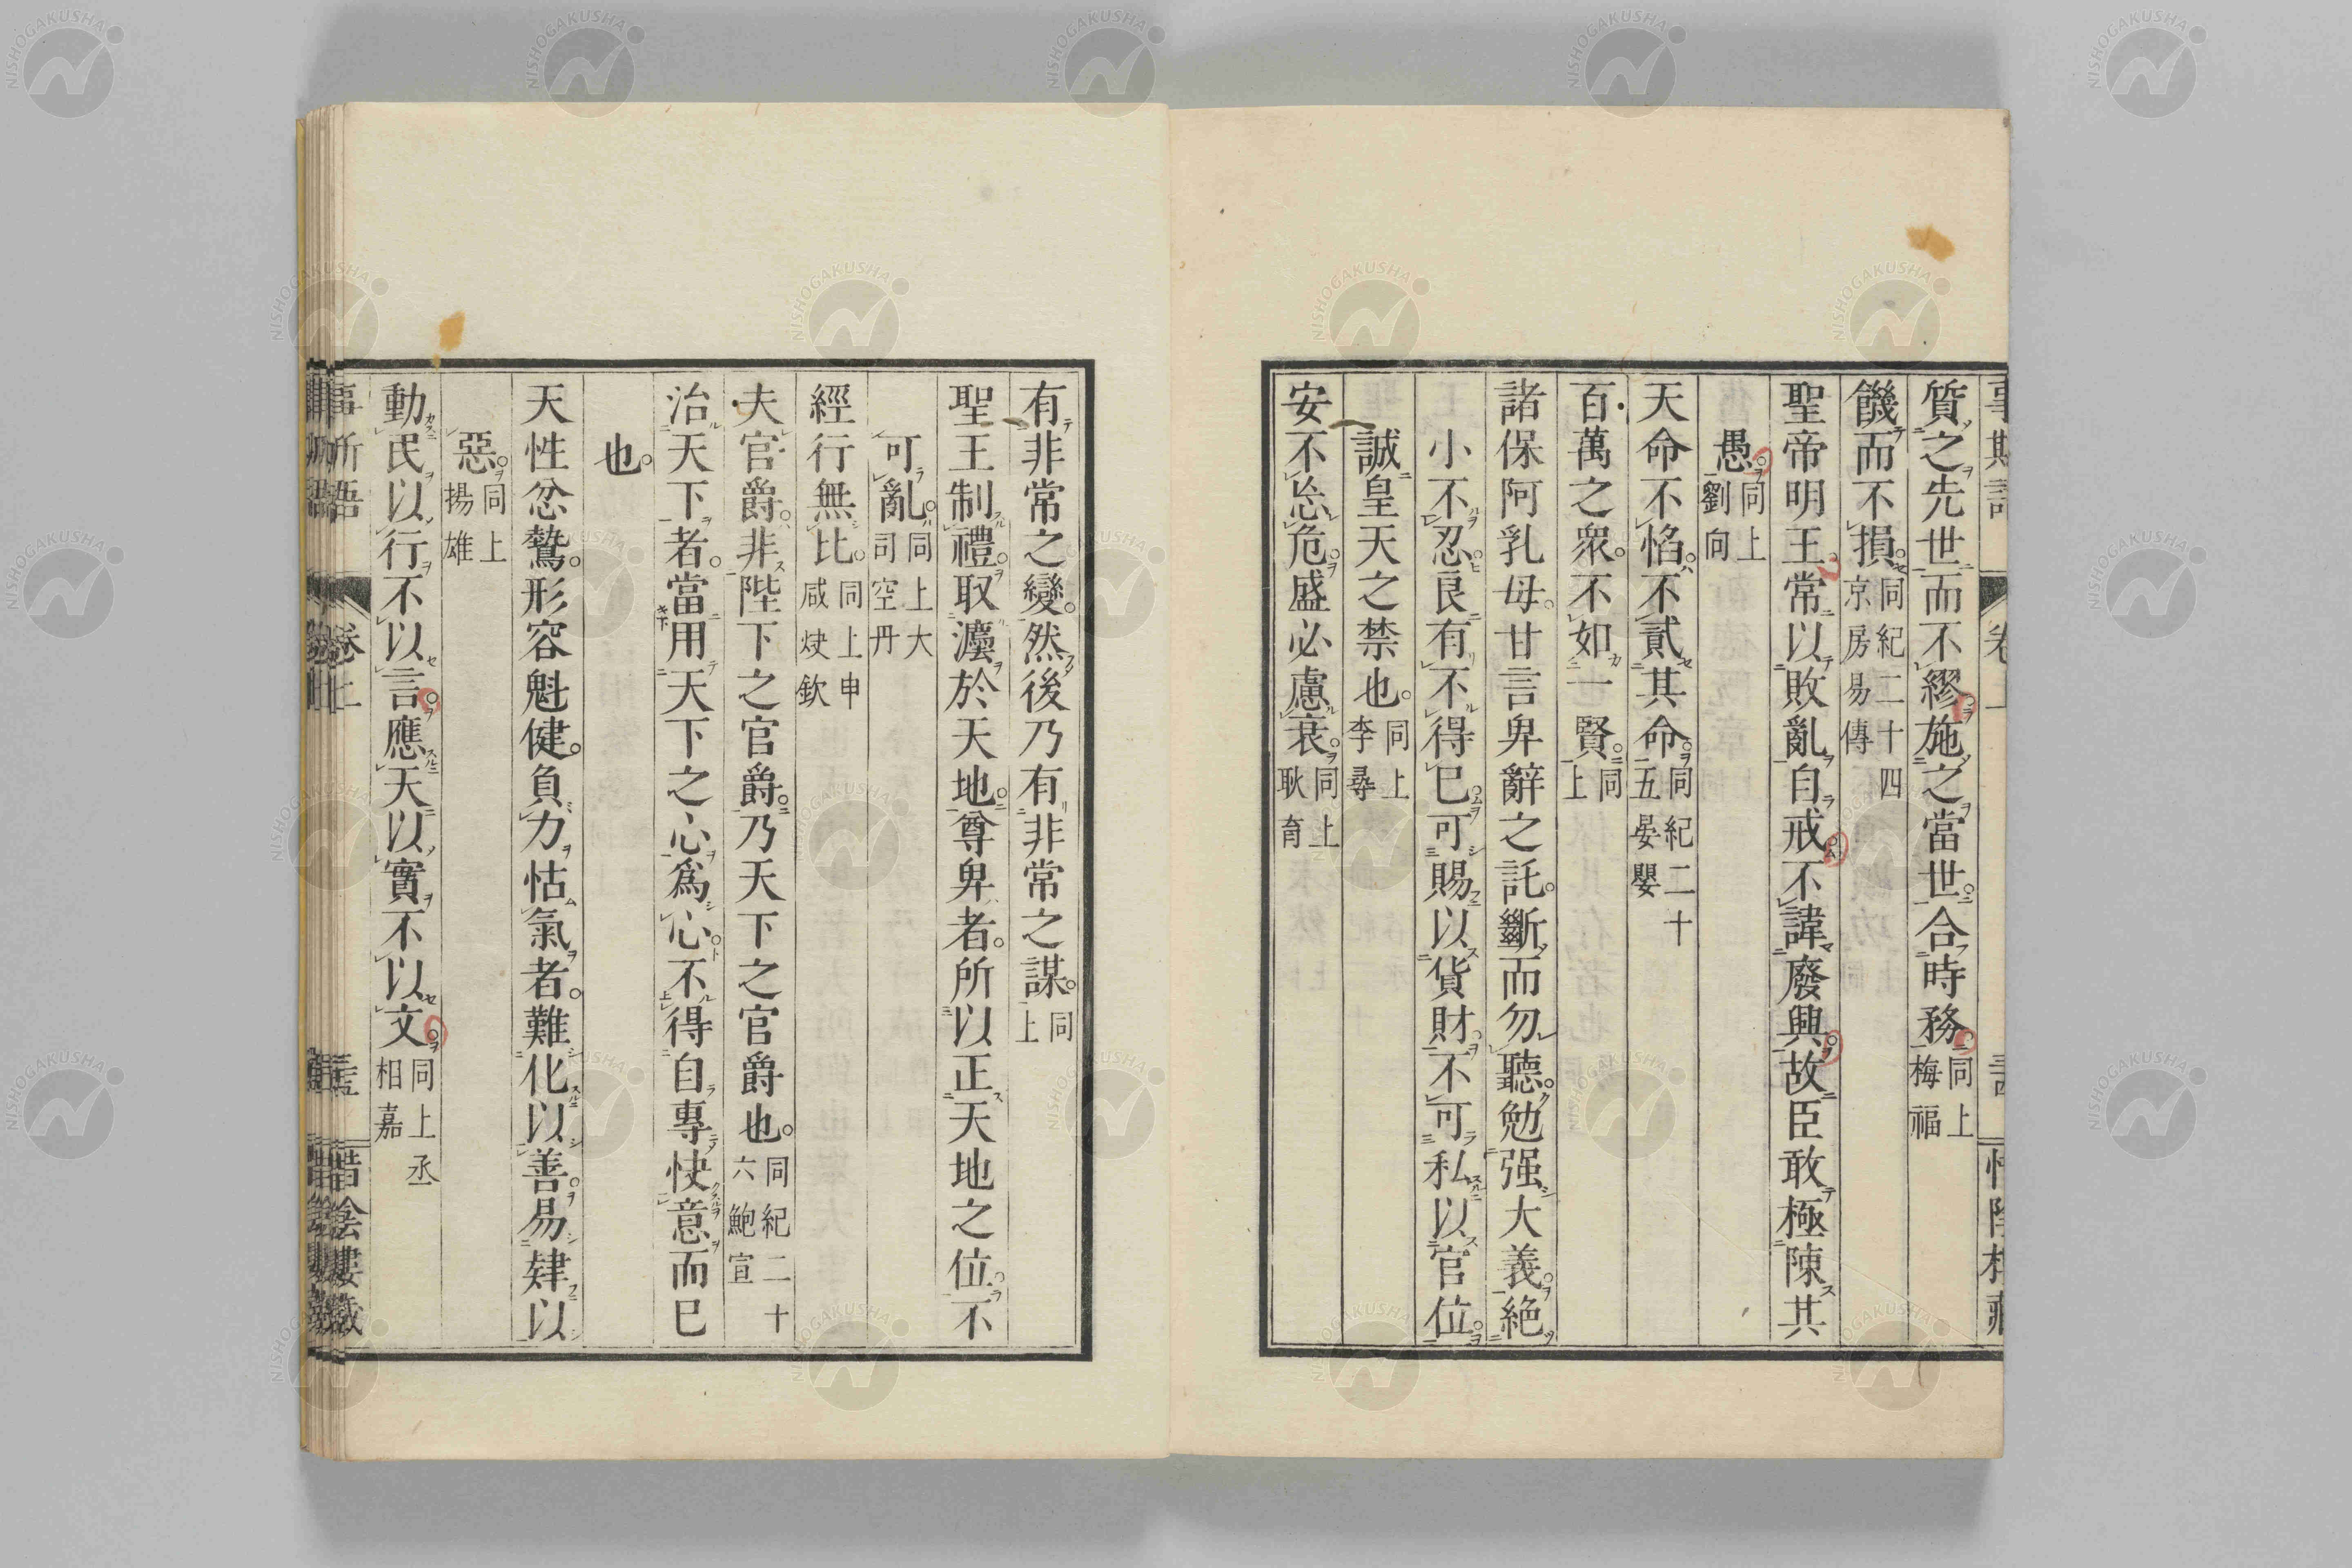 質之先世而不繆施之當世合時務同上梅福
饑而不損同紀二十四京房易傳
聖帝明王常以敗亂自戒不諱廢興故臣敢極陳其
愚同上劉向
天命不慆不貳其命同紀二十五晏嬰
百萬之衆不如一賢同上
諸保阿乳母甘言卑辭之託斷而勿聽勉强大義絶
小不忍良有不得已可賜以貨財不可私以官位
誠皇天之禁也同上李尋
安不忘危盛必慮衰同上耿育
有非常之變然後乃有非常之謀同上
聖王制禮取灋於天地尊卑者所以正天地之位不
可亂同上大司空丹
經行無比同上申咸炔欽
夫官爵非陛下之官爵乃天下之官爵也同紀二十六鮑宣
治天下者當用天下之心爲心不得自專快意而已
也
天性忿鷙形容魁健負力怙氣者難化以善易肄以
惡同上揚雄
動民以行不以言應天以實不以文同上丞相嘉
卷上
惜陰樓藏
NISHOGAKUSHA